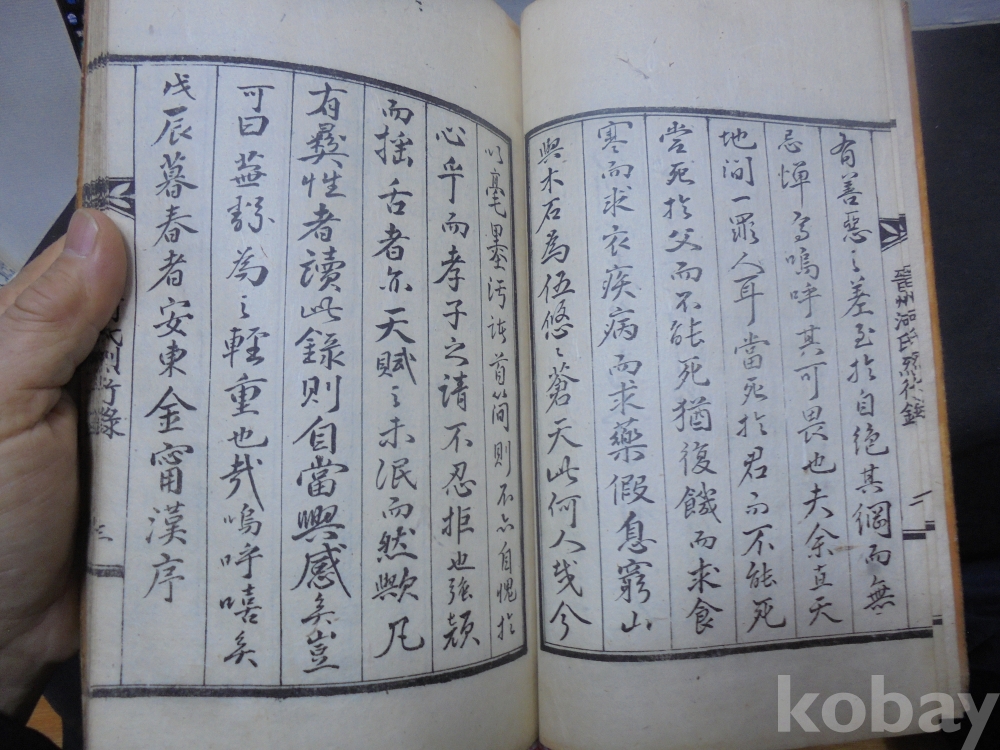 有善惡之差至於自絕其綱而無
忌憚烏嗚呼其可畏也夫余直天
地間一罪人耳當死於君而不能死
嘗死於父而不能死猶復饑而求食
寒而求衣疾病而求藥假息窮山
與木石為伍悠〻蒼天此何人哉今
以毫墨汚諸首簡則不亦自愧於
心乎而孝子之請不忍拒也强顔
而搖舌者亦天賦之未泯而然歟凡
有彛性者讀此錄則自當興感矣豈
可曰蕪辭為之輕重也哉嗚呼嘻矣
戊辰暮春者安東金甯漢序
晉州河氏 錄
二
行錄
三
kobay